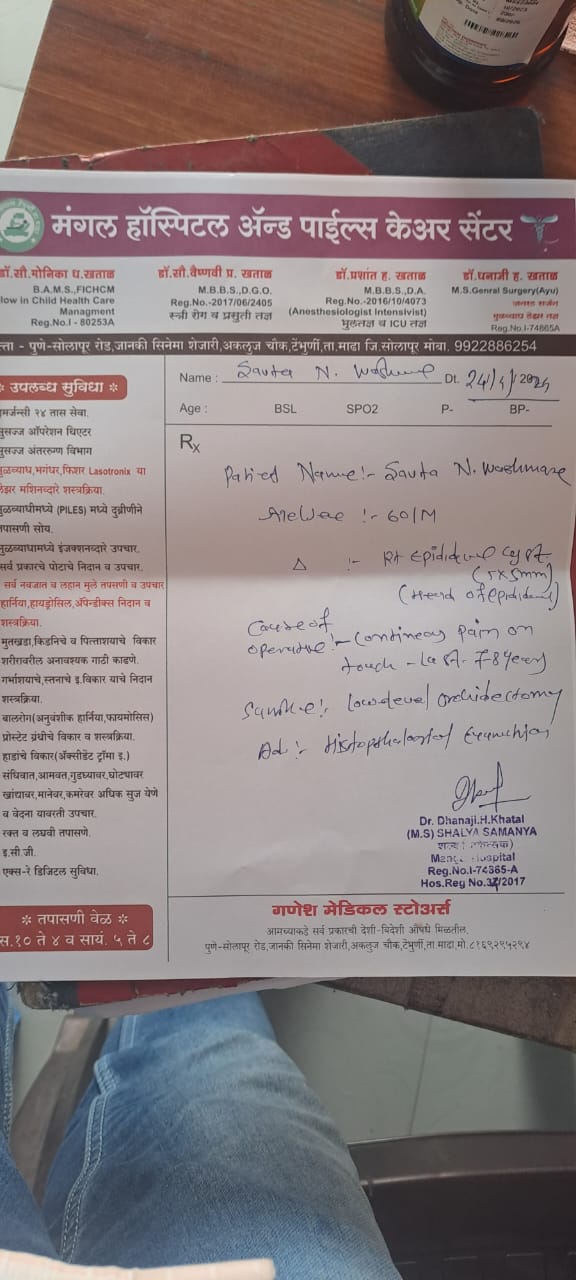 मंगल हॉस्पिटल ॲन्ड पाईल्स केअर सेंटर
डॉ.सौ.मोनिका ध.खताळ
B.A.M.S.,FICHCM
low in Child Health Care
Managment
Reg.No.I - 80253A
डॉ.सौ.वैष्णवी प्र. खताळ
M.B.B.S.,D.G.O.
Reg.No.-2017/06/2405
स्त्री रोग व प्रसुती तज्ञ
डॉ.प्रशांत ह. खताळ
M.B.B.S.,D.A.
Reg.No.-2016/10/4073
(Anesthesiologist Intensivist)
भुलतज्ञ व ICU तज्ञ
डॉ.धनाजी ह. खताळ
M.S.Genral Surgery(Ayu)
जनरल सर्जन
मुळव्याध लेझर तज्ञ
Reg.No.I-74865A
त्ता - पुणे-सोलापूर रोड,जानकी सिनेमा शेजारी,अकलुज चौक,टेंभुर्णी,ता.माढा जि.सोलापूर मोबा. 9922886254
* उपलब्ध सुविधा *
मर्जन्सी २४ तास सेवा.
सुसज्ज ऑपरेशन थिएटर
सुसज्ज अंतररुग्ण विभाग
मुळव्याध,भगंधर,फिशर Lasotronix या
लेझर मशिनव्दारे शस्त्रक्रिया.
मुळव्याधीमध्ये (PILES) मध्ये दुर्बीणीने
तपासणी सोय.
मुळव्याधामध्ये इंजक्शनव्दारे उपचार.
सर्व प्रकारचे पोटाचे निदान व उपचार.
सर्व नवजात व लहान मुले तपासणी व उपचार
हार्निया,हायड्रोसिल,अ‍ॅपेन्डीक्स निदान व
शस्त्रक्रिया.
मुतखडा,किडनिचे व पित्ताशयाचे विकार
शरीरावरील अनावश्यक गाठी काढणे.
गर्भाशयाचे,स्तनाचे इ.विकार याचे निदान
शस्त्रक्रिया.
बालरोग(अनुवंशीक हार्निया,फायमोसिस)
प्रोस्टेट ग्रंथीचे विकार व शस्त्रक्रिया.
हाडांचे विकार(अ‍ॅक्सीडेंट ट्रॉमा इ.)
संधिवात,आमवत,गुडघ्यावर,घोट्यावर
खांद्यावर,मानेवर,कमरेवर अधिक सुज येणे
व वेदना यावरती उपचार.
रक्त व लघवी तपासणे.
इ.सी.जी.
एक्स-रे डिजिटल सुविधा.
* तपासणी वेळ *
स.१० ते ४ व सायं. ५ ते ८
Name : Savta N. Washmare Dt. 24/4/2024
Age : BSL SPO2 P- BP-
Rx
Patient Name :- Savta N. Washmare
:- 60/M
△ :- Rt Epididimal Cyst
(5x5mm)
(Head of epididimal)
Cause of
operative :- Contineous pain on
touch - last - 7-8 years
:- low level orchidectomy
Ad :-
Dr. Dhanaji.H.Khatal
(M.S) SHALYA SAMANYA
Mangal Hospital
Reg.No.I-74365-A
Hos.Reg No.37/2017
गणेश मेडिकल स्टोअर्स
आमच्याकडे सर्व प्रकारची देशी-विदेशी औषधे मिळतील.
पुणे-सोलापूर रोड,जानकी सिनेमा शेजारी,अकलुज चौक,टेंभुर्णी,ता माढा,मो.८१६९२९५२९४